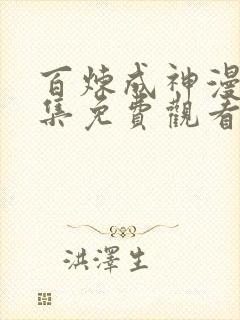 百煉成神漫
集免費觀看
洪澤生